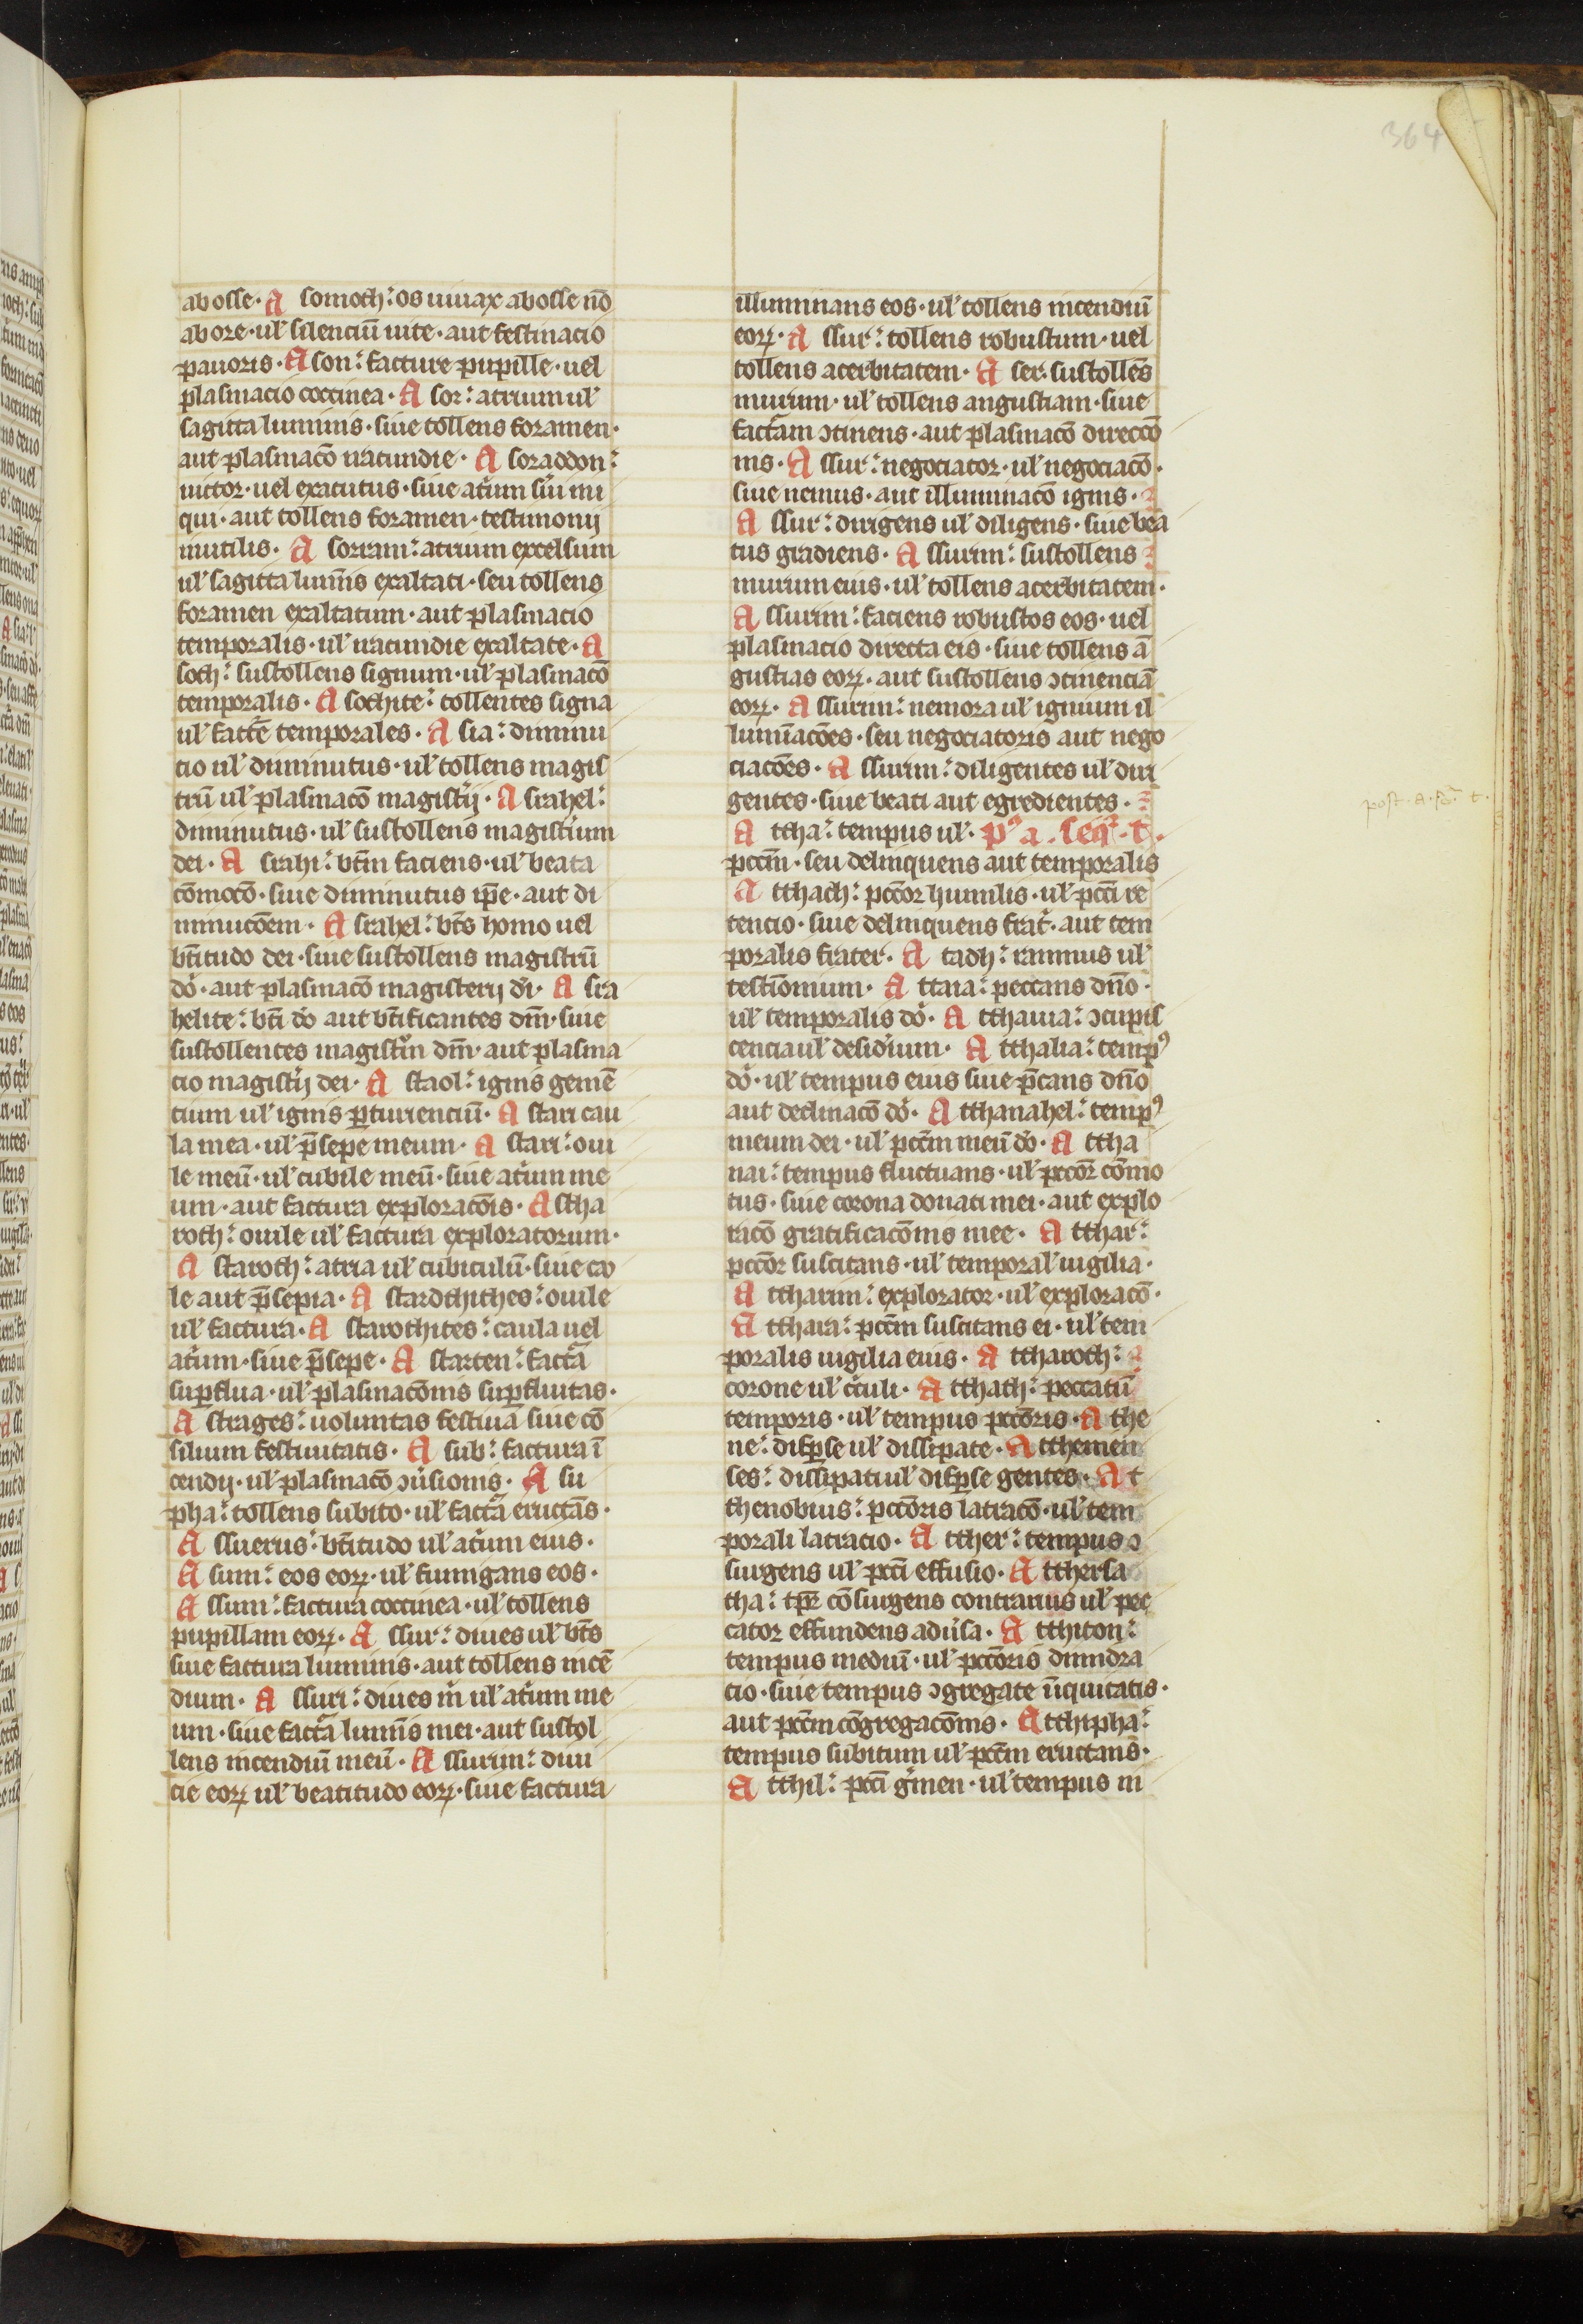 364
ab osse · A somoth : os uiuax ab osse nō
ab ore · ul' silenciū uite · aut festinacio
pauoris · A son : facture pupille · uel
plasmacio coccinea · A sor : atrium ul'
sagitta luminis · siue tollens foramen ·
aut plasmacō iracundie · A soraddon :
uictor · uel exacutus · siue at'um su'i ini
qui · aut tollens foramen · testimonij
inutilis · A sorram : atrium excelsum
ul' sagitta lumīs exaltati · seu tollens
foramen exaltatum · aut plasmacio
temporalis · ul' iracundie exaltate · A
soth : sustollens signum · ul' plasmacō
temporalis · A sothite : tollentes signa
ul' fac̄te temporales · A sra : diminu
cio ul' diminutus · ul' tollens magis
trū ul' plasmacō magist'ij · A srahel :
diminutus · ul' sustollens magist'ium
dei · A srahi : bt̄m faciens · ul' beata
cōmocō · siue diminutus ip̄e · aut di
minucōem · A srahel : bt̄s homo uel
bt̄itudo dei · siue sustollens magistrū
dō · aut plasmacō magisterij di · A sra
helite : bt̄i dō aut bt̄ificantes dm̄ · siue
sustollentes magist'm dm̄ · aut plasma
cio magist'ij dei · A staol : ignis gemē
cium ul' ignis p̱turienciū · A stari cau
la mea · ul' p̄sepe meum · A stari : oui
le meū · ul' cubile meū · siue at'um me
um · aut factura exploracōis · A stha
roth : ouile ul' factura exploratorum ·
A staroth : atria ul' cubiculū · siue cao
le aut p̄sepia · A stardthithes : ouile
ul' factura · A starothites : caula uel
at'um · siue p̄sepe · A starten : fact̄a
sup̱flua · ul' plasmacōnis sup̱fluitas ·
A strages : uoluntas festiuā siue cō
silium festiuitatis · A sub : factura ī
cendij · ul' plasmacō ɔu'sionis · A su
pha : tollens subito · ul' fact̄a eructās ·
A ssuerus : bt̄itudo ul' at'um eius ·
A sum : eos eoꝝ · ul' fumigans eos ·
A ssum : factura coccinea · ul' tollens
pupillam eoꝝ · A ssur : diues ul' bt̄s
siue factura luminis · aut tollens incē
dium · A ssuri : diues m̄ ul' at'um me
um · siue fact̄a lumīs mei · aut sustol
lens incendiū meū · A ssurim : diui
cie eoꝝ ul' beatitudo eoꝝ · siue factura
illuminans eos · ul' tollens incendiū
eoꝝ · A ssur : tollens robustum · uel
tollens acerbitatem · A ser : sustollēs
murum · ul' tollens angustiam · siue
fact̄am ɔtinens · aut plasmacō direccō
nis · A ssur : negociator · ul' negociacō ·
siue nemus · aut illuminacō ignis ·
A ssur : dirigens ul' diligens · siue bea
tus gradiens · A ssurim : sustollens
murum eius · ul' tollens acerbitatem ·
A ssurim : faciens robustos eos · uel
plasmacio directa eis · siue tollens ā
gustias eoꝝ · aut sustollens ɔtinenciā
eoꝝ · A ssurim : nemora ul' ignium il
lumīacōes · seu negociatoris aut nego
ciacōes · A ssurim : diligentes ul' diri
gentes · siue beati aut egredientes ·
A ttha : tempus ul' · pꝰ a · seq̄ꞏ t ·
pcc̄m · seu delinquens aut temporalis
A tthach : pcc̄or humilis · ul' pcc̄i re
tencio · siue delinquens frat' · aut tem
poralis frater · A tadh : ramnus ul'
testīonium · A ttaia : peccans dn̄o ·
ul' temporalis dō · A tthauia : ɔcupis
cencia ul' desid'ium · A tthalia : tempꝰ
dō · ul' tempus eius siue p̄cans dn̄o
aut declinacō dō · A tthanahel : tempꝰ
meum dei · ul' pcc̄m meū dō · A ttha
nai : tempus fluctuans · ul' pcc̄or cōmo
tus · siue corona donati mei · aut explo
racō gratificacōnis mee · A tthar :
pcc̄or suscitans · ul' temporal' uigilia ·
A ttharim : explorator · ul' exploracō ·
A tthara : pcc̄m suscitans ei · ul' tem
poralis uigilia eius · A ttharoth :
corone ul' c'culi · A tthath : peccatū
temporis · ul' tempus pcc̄oris · A the
ne : disp̱se ul' dissipate · A tthemen
ses : dissipati ul' disp̱se gentes · A t
thenobius : pcc̄oris latracō · ul' tem
porali latracio · A tther : tempus ɔ
surgens ul' pcc̄i effusio · A tthersa
tha : tp̄s cōsurgens contrarius ul' pec
cator effundens adu'sa · A tthiton :
tempus mediū · ul' pcc̄oris dimidra
cio · siue tempus ɔgregate īiquitatis ·
aut pcc̄m cōgregacōnis · A tthipha :
tempus subitum ul' pcc̄m eructans ·
A tthil : pcc̄i g'men · ul' tempus in
post · a · sꝫ · t ·